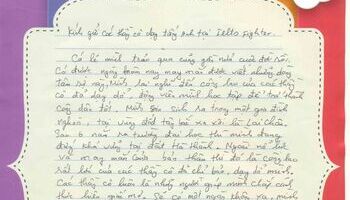 Kính gửi các thầy cô dạy tiếng anh tại Iello Fighter.
Có lẽ mình trải qua cũng gần nửa cuộc đời rồi.
Có được ngày hôm nay may mắn được viết những dòng
tâm sự này, mình lại nghĩ đến công lao của các thầy
cô đã dạy dỗ, động viên mình học tập để trở thành
Mình sinh ra trong một gia đình
nghèo, tại vùng đất
Sau 6 năm ra trường đại học thì mình đang
đứng nhìn vùng tại đất Hà Thành. Ngoài nỗ lực
và may mắn của bản thân thì đó là công lao
rất lớn của các thầy cô đã chỉ bảo, dạy dỗ mình.
Các thầy cô luôn là những người giúp mình chắp cánh
thực hiện giấc mơ. Sẽ có một ngày không xa, mình